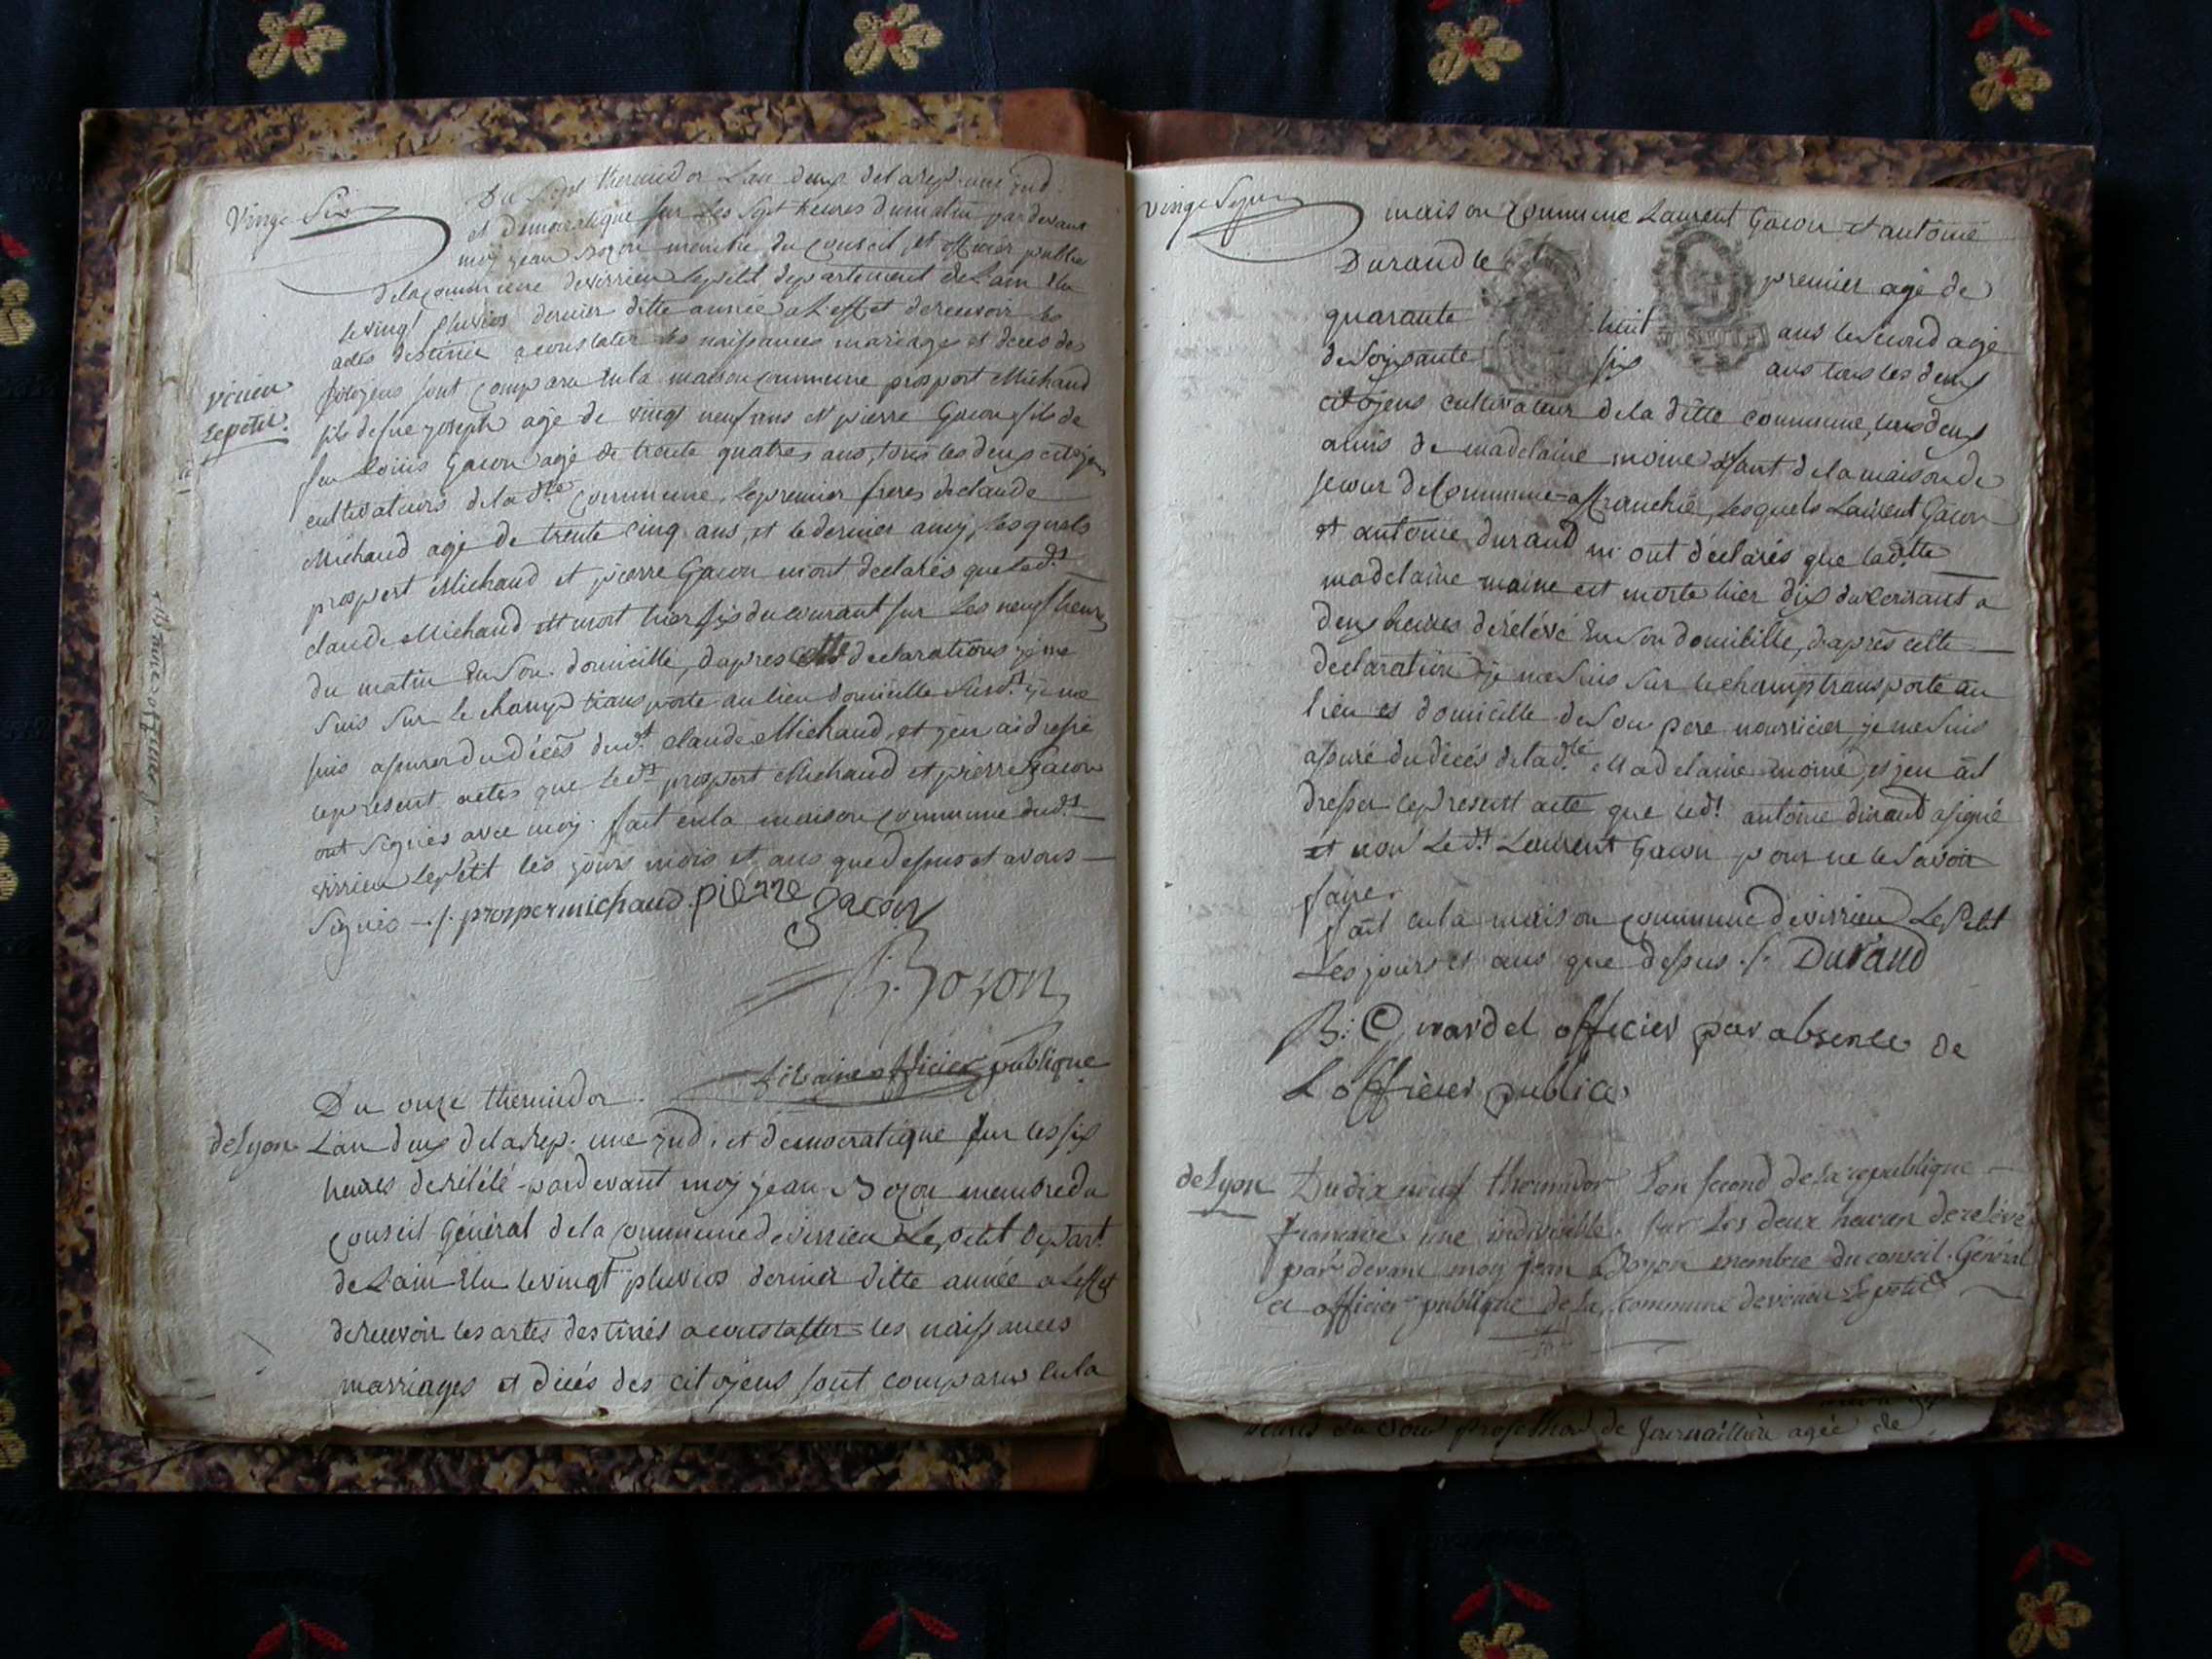 Vingt Six
Du Sept thermidor L'an deux de la rep. une ind.
et democratique sur les sept heures du matin par devant
moy jean Bozon membre du conseil et officier public
de la commune de virrieu le petit departement de L'ain Elu
le vingt pluvios dernier ditte année a L'effet de recevoir les
actes destinés a constater les naissances mariages et deces des
virieu
Lepetit.
Citoyens sont comparu en la maison commune prospert Michaud
fils de fue joseph age de vingt neuf ans et pierre Gacon fils de
feu Loüis Gacon agé de trente quatres ans, tous les deux citojens
cultivateurs de la dte commune, le premier freres de claude
Michaud age de trente cinq ans, et le dernier amy, Lesquels
prospert Michaud et pierre Gacon m'ont declarés que led.t
claude Michaud est mort hier six du courant sur Les neuf heures
du matin En Son domicille, d'apres cette declarations je me
suis sur le champ transporte au lieu domicille Susd.t je me
suis assurer du décès dud.t claude Michaud, et j'en ai dressé
le present actes que led.t prospert Michaud et pierre Gacon
ont signés avec moy. fait en la maison commune dud.t
virrieu Le Petit les jours mois et ans que dessus et avons
Signés ./. prosper michaud. pierre gacon
J. Bozon
officier publique
Du onze thermidor
de Lyon
L'an deux de la rep. une ind. et democratique sur les six
heures de rélélé par devant moy jean Bozon membre du
conseil Général de la commune de virrieu Le petit Depart.t
de L'ain Elu le vingt pluvios dernier ditte année a L'effet
de recevoir les actes destinés a constatter les naissances
marriages et décés des citojens sont comparus en la
vingt Sept
maison commune Laurent Gacon et antoine
Durand le premier agé de
quarante huit ans le second agé
de Soixante six ans tous les deux
citojens cultivateur de la ditte commune, tous deux
amis de madelaine moine Enfant de la maison de
secour de Commune-affranchie, Lesquels Laurent Gacon
et antoine durand m'ont déclarés que lad.tte
madelaine moine est morte hier dix du courant a
deux heures de rélévé En Son domicille, d'après cette
declaration je me suis sur le champ transporté au
lieu et domicille de Son pere nourricier je me suis
assuré du décés de lad.te Madelaine moine, et j'en ait
dresser le present acte que led.t antoine durand a signé
et non Le d.t Laurent Gacon pour ne le savoir
faire.
fait en la maison commune de virrieu Le Petit
Les jours et ans que dessus ./. Durand
officier par absence de
L officier publice
de Lyon
Du dix neuf thermidor L'an second de la republique
francaise une indivisible. sur Les deux heures de relevé
par devant moy jean Bozon membre du conseil. Général
et officier publique de la commune de virieu Le petit
profession de Journaillère agée de